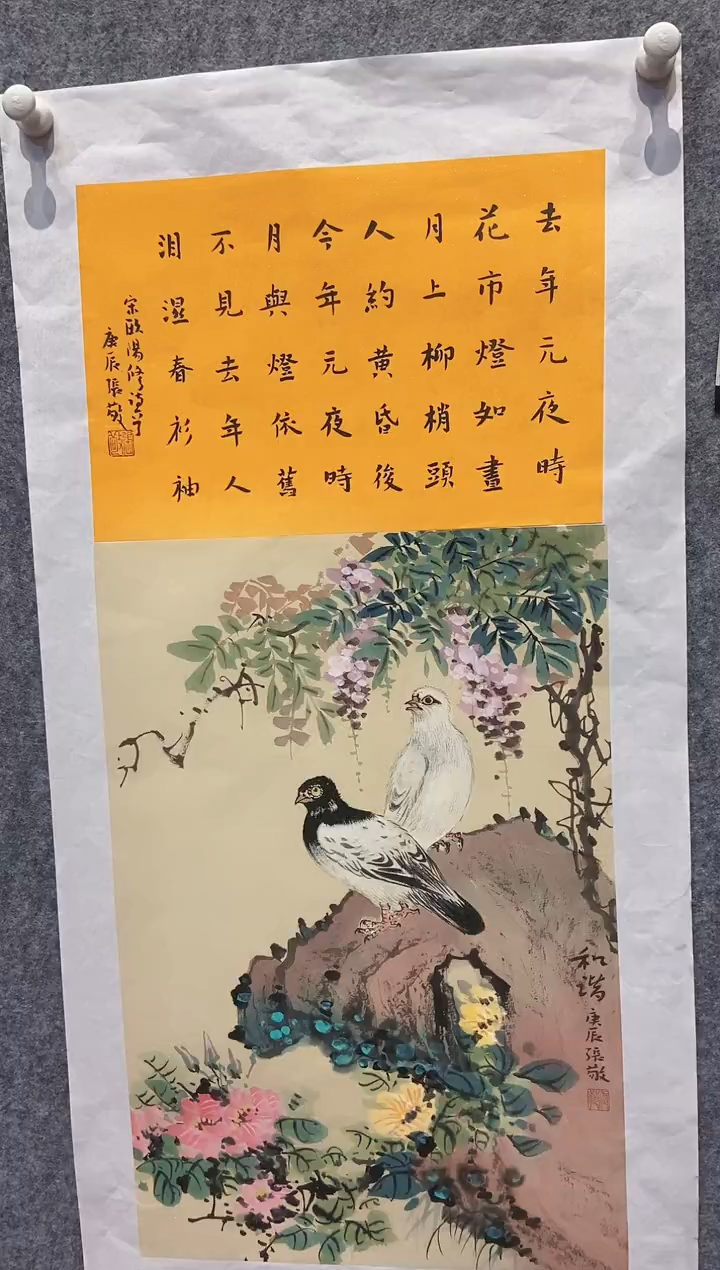 去年元夜時
花市燈如畫
月上柳梢頭
人約黄昏後
今年元夜時
月與燈依舊
不見去年人
泪濕春衫袖
宋歐陽修
庚辰張敬
和諧
庚辰張敬